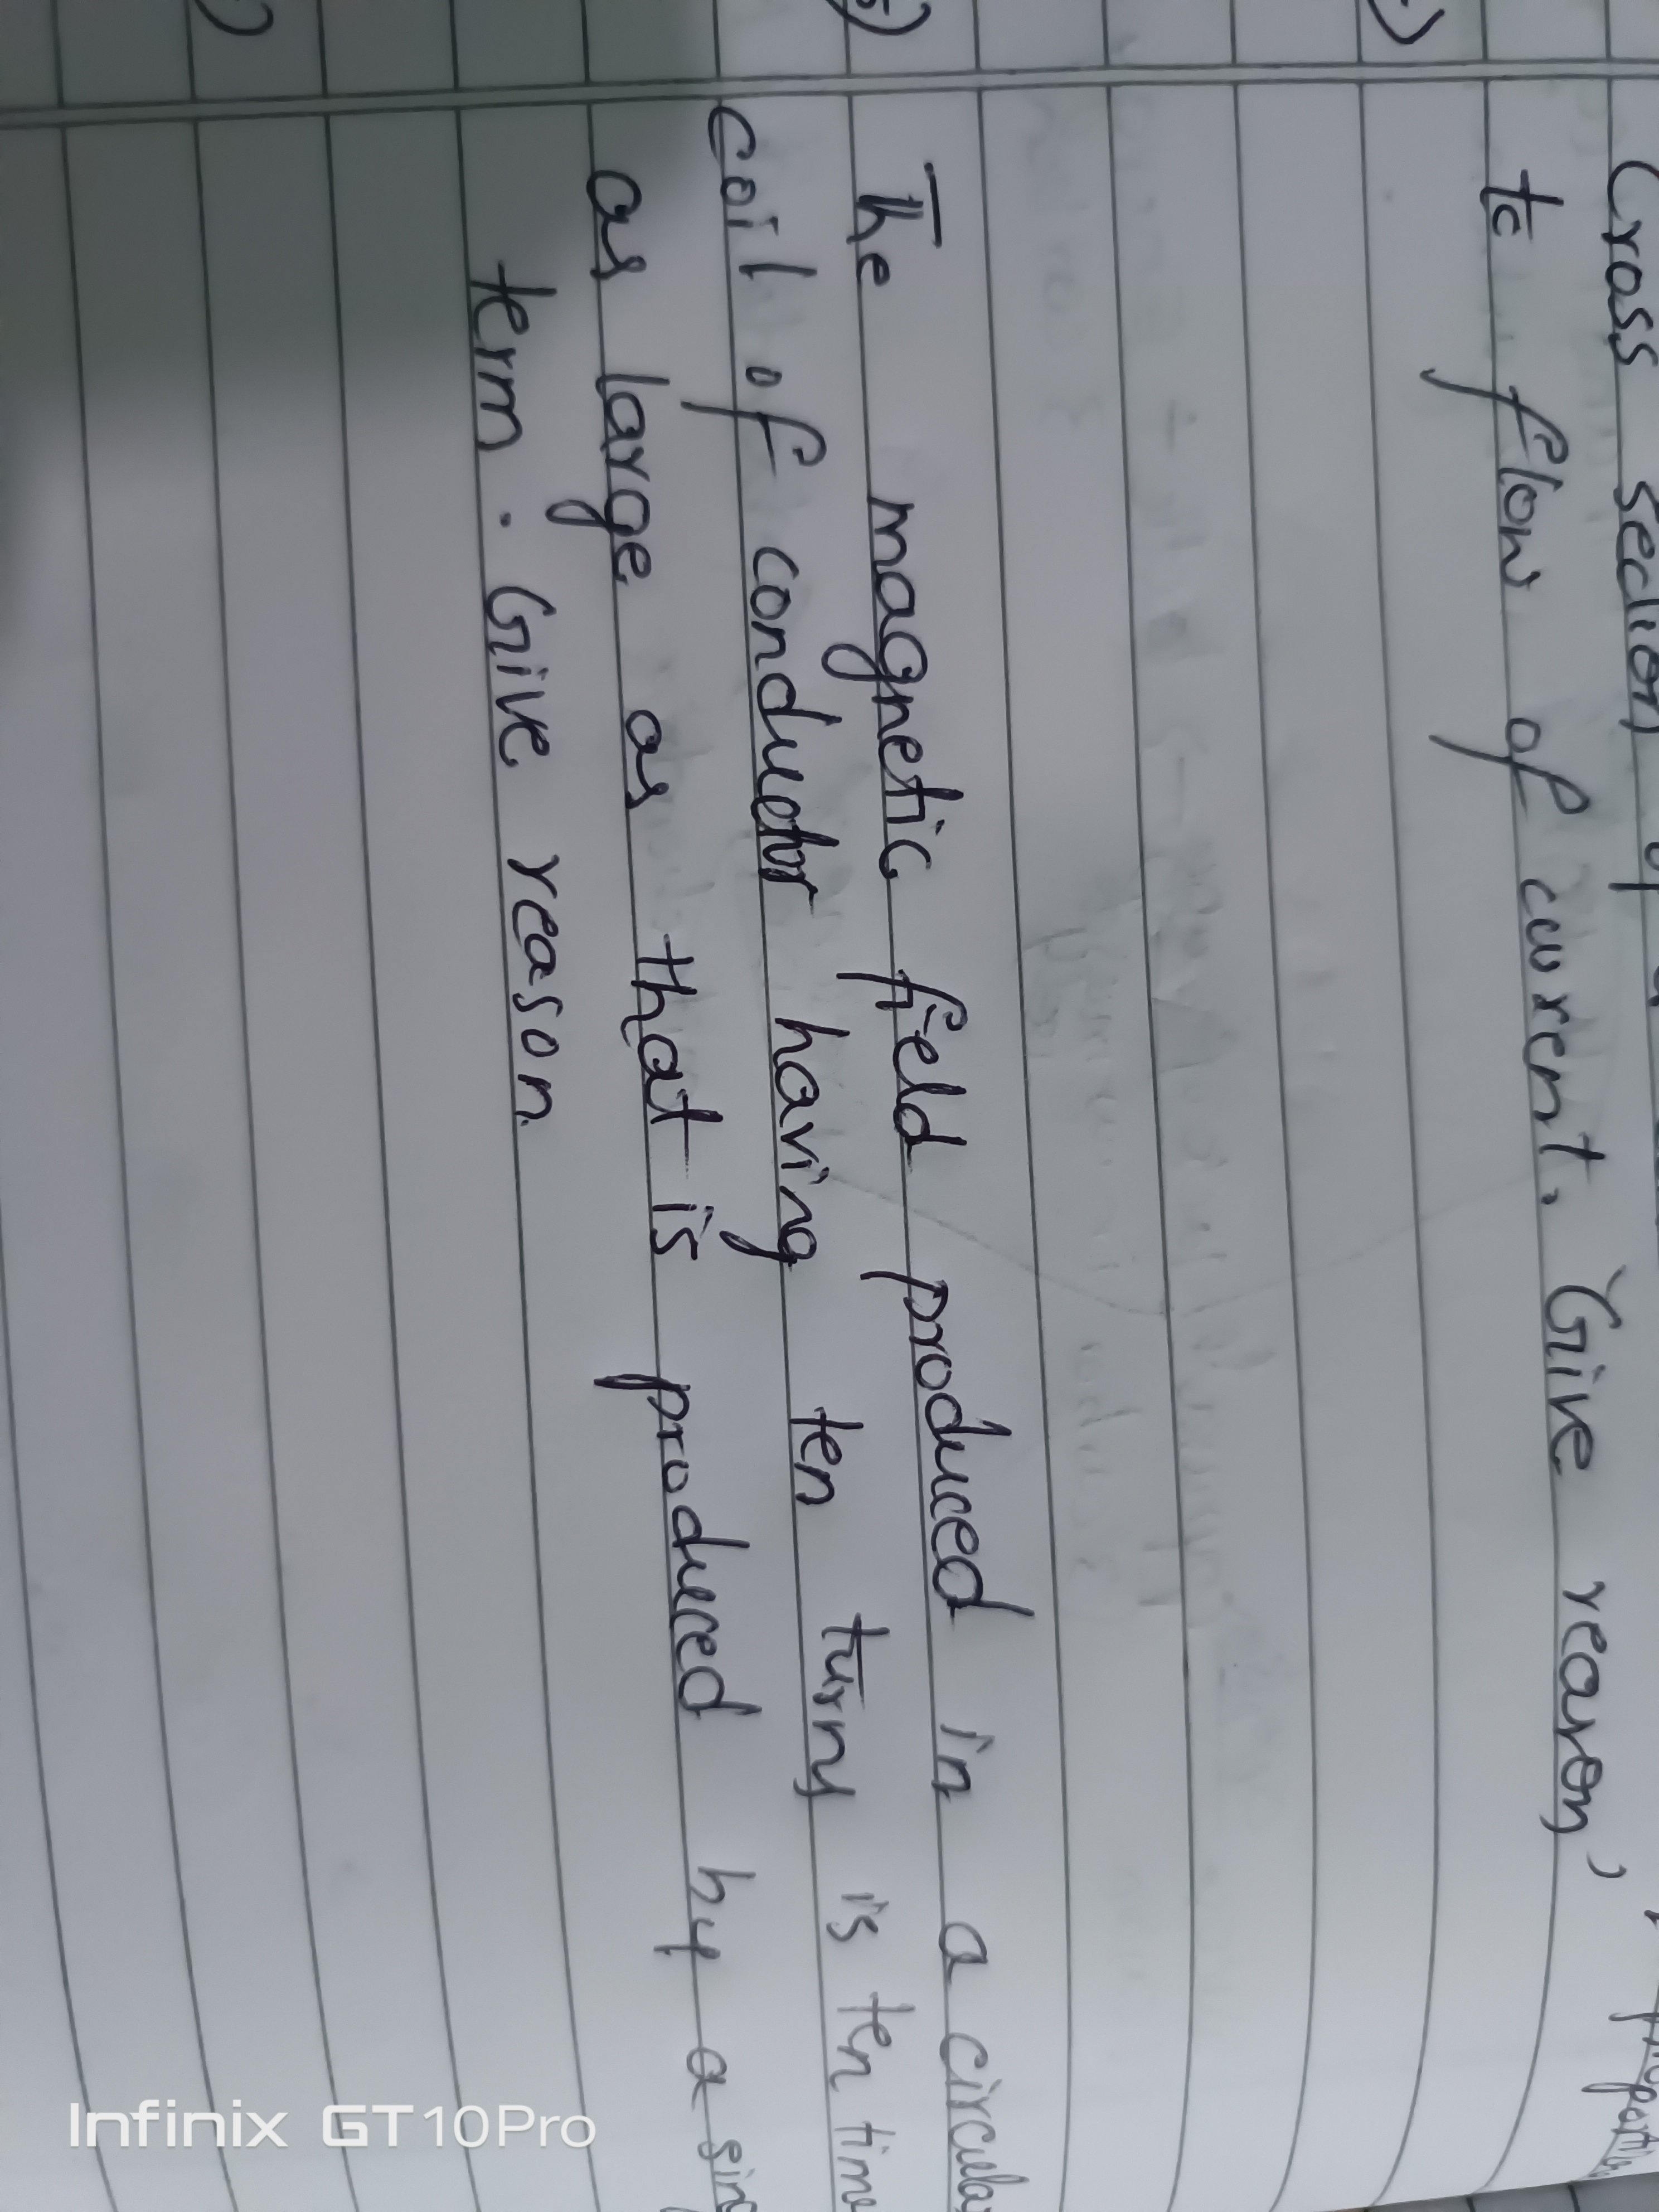 Cross section
to flow of current. Give reason,
The magnetic field produced in a circular
coil of conductor having ten turns is ten time
as large as that is produced by a sing
term. Give reason
Infinix GT10Pro